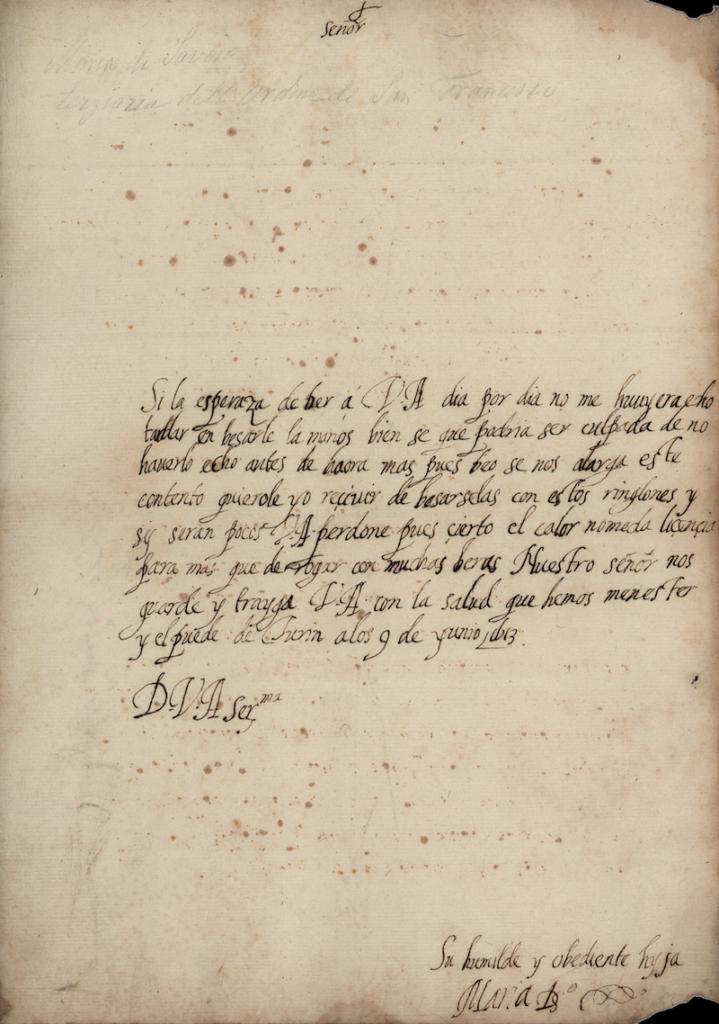 Señor
Maria di Savoia
terziaria dell'Ordine di San Francesco
Si la esperaza de ber á V.A dia por dia no me huuyera echo
tardar en besarle la manos bien se que podria ser culpada de no
hauerlo echo antes de haora mas pues beo se nos alarga este
contento quierole yo reciuir de besarselas con estos ringlones y
si seran pocos V.A. perdone pues cierto el calor nomeda licencia
para más que de rogar con muchas beras Nuestro señor nos
guarde y trayga V.A. con la salud que hemos menester
y el puede de Turin a los 9 de yunio 1613
D.V.A ser.ma
Su humilde y obediente hyja
Maria